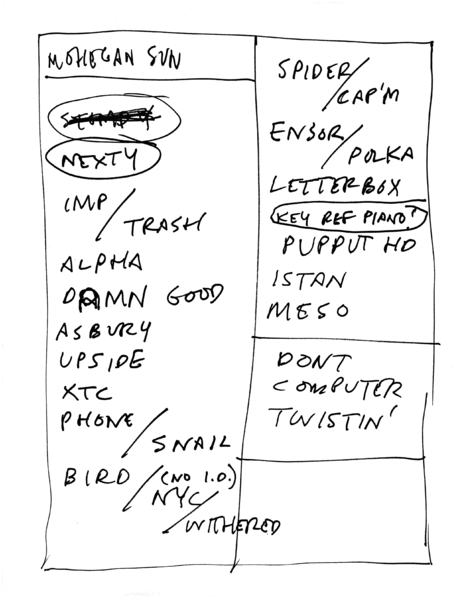 MOHEGAN SUN
NEXTY
IMP /
TRASH
ALPHA
DAMN GOOD
ASBURY
UPSIDE
XTC
PHONE /
SNAIL
BIRD / (NO I.D.)
NYC /
WITHERED
SPIDER /
CAP'M
ENSOR /
POLKA
LETTERBOX
KEY REF PIANO?
PUPPUT HD
ISTAN
MESO
DONT
COMPUTER
TWISTIN'